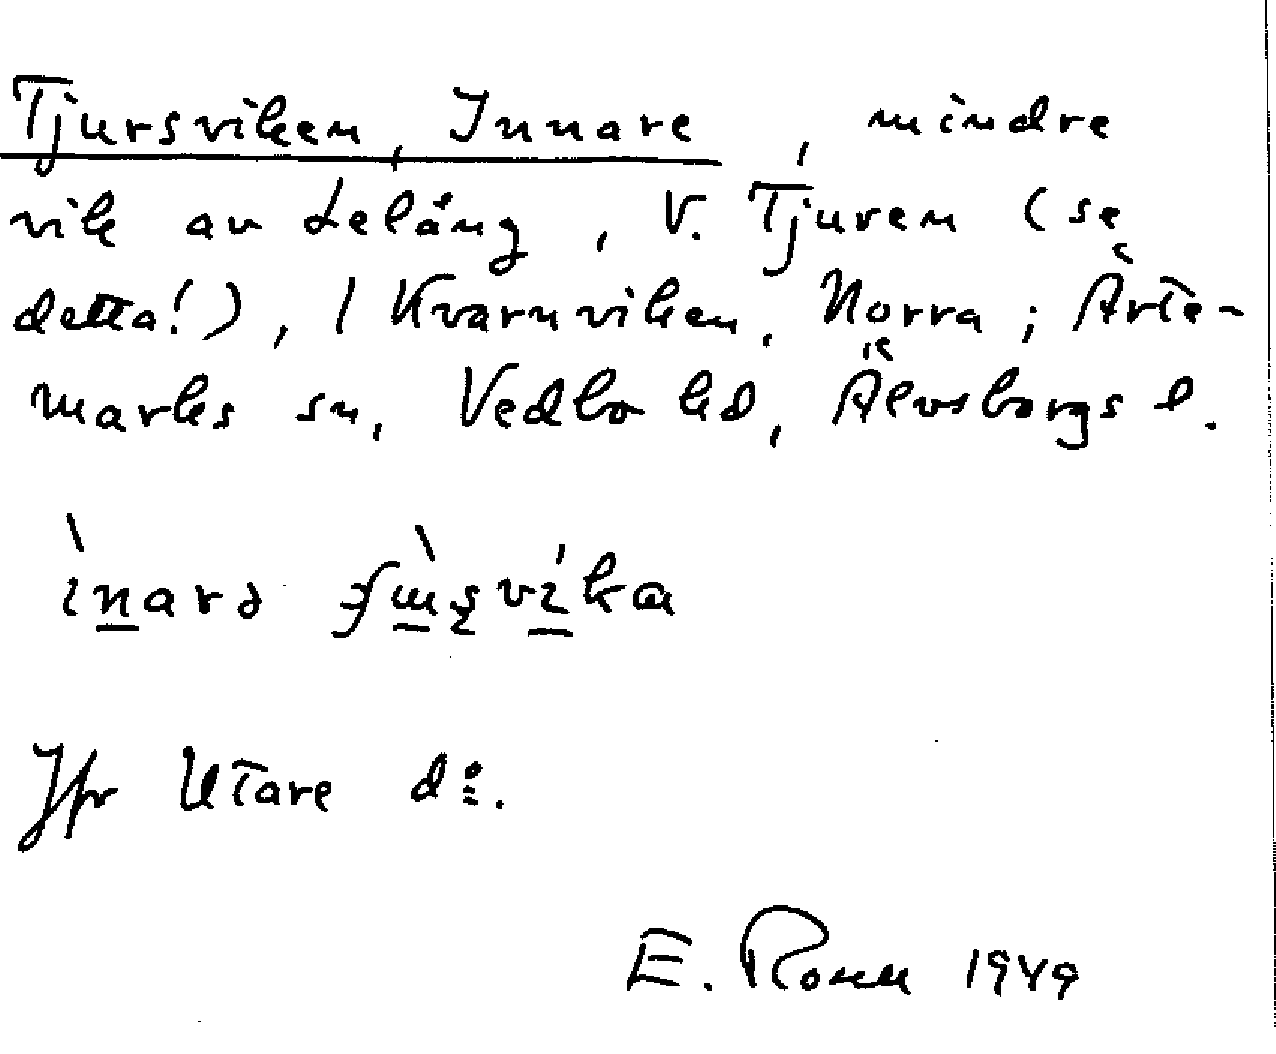 Tjursviken, Innare, mindre
vik av Lelång, V. Tjuren (se
detta!), / Kvarnviken, Norra; Ärte-
marks sn, Vedbo hd, Älvsborgs l.
Jfr Utare do.
E. Rosell 1949